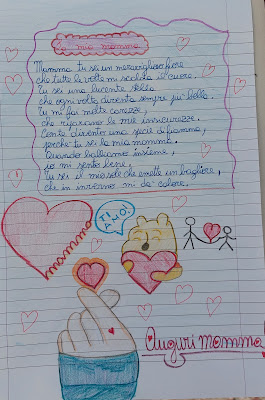 La mia mamma
Mamma tu sei un meraviglioso fiore
che tutte le volte mi scalda il cuore.
Tu sei una lucente stella
che ogni volta diventa sempre più bella.
Tu mi fai molte carezze
che riparano le mie insicurezze.
Con te divento una specie di fiamma,
perché tu sei la mia mamma.
Quando balliamo insieme,
io mi sento bene.
Tu sei il mio sole che emette un bagliore,
che in inverno mi dà calore.
mamma
TI
AMO!
Auguri mamma!